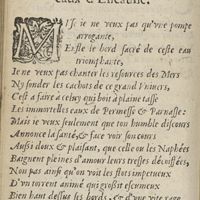 eaux d'Encausse.
MUse ie ne veux pas qu'vne pompe
arrogante,
Enfle le bord sacré de ceste eau
triomphante,
Ie ne veux pas chanter les resources des Mers
Ny sonder les cachots de ce grand Vniuers,
C'est a faire a celuy qui boit à plaine tasse
Les immortelles eaux de Permesse & Parnasse:
Mais ie veux seulement que ton humble discours
Annonce la santé, & face voir son cours
Aussi doux & plaisant, que celle ou les Naphées
Baignent pleines d'amour leurs tresses décoiffées,
Non pas ainsi qu'on voit les flots impetueux
D'vn torrent animé qui grossit escumeux
Bien haut dessus ses bords, & d'vne vite rage